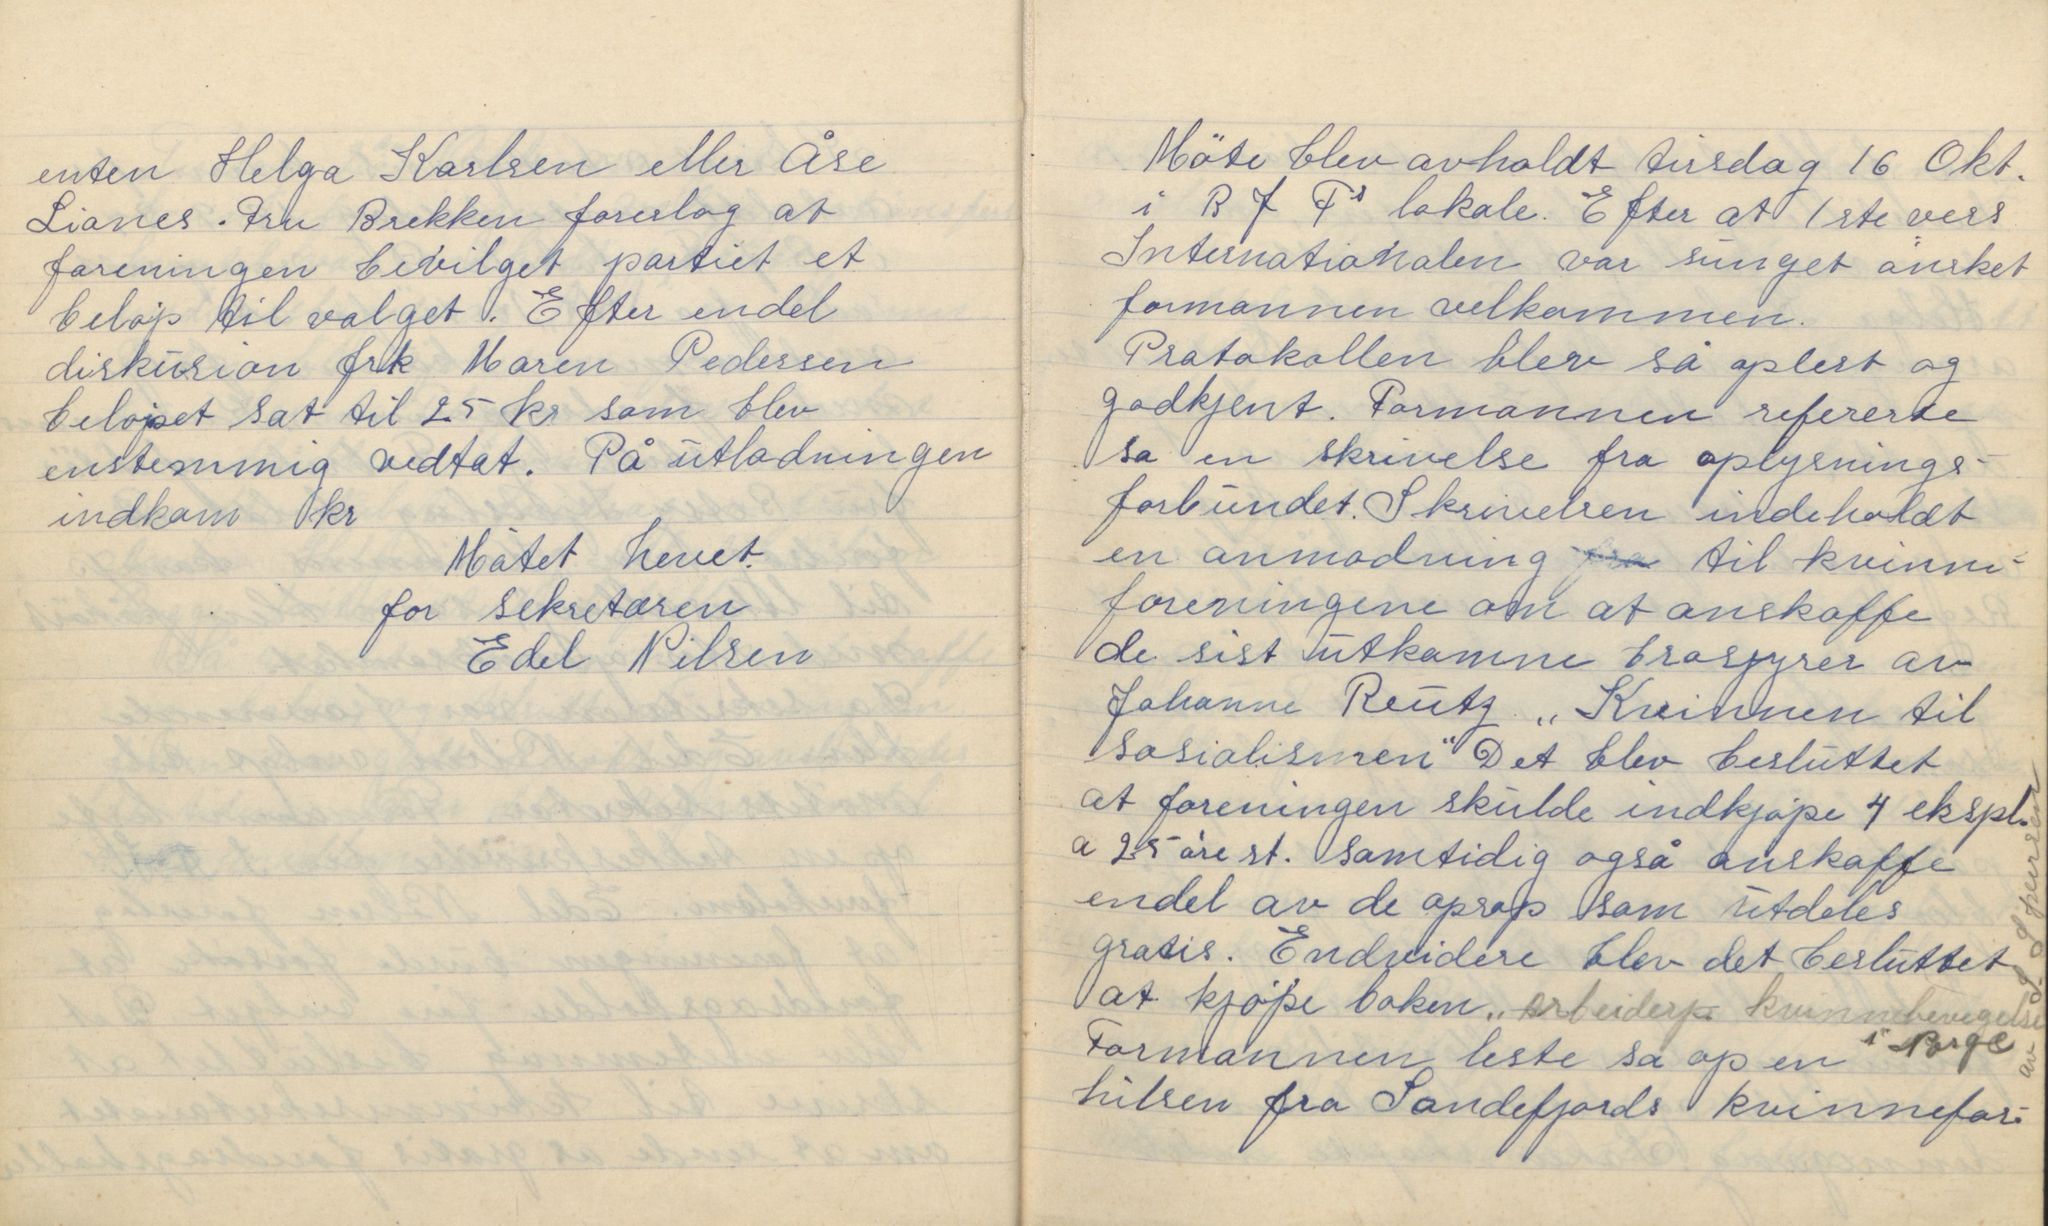 enten Helga Karlsen eller Åse
Lianes. Fru Brekken foreslog at
foreningen bevilget partiet et
beløp til valget. Efter endel
diskusion frk Maren Pedersen
beløpet sat til 25 kr som blev
enstemmig vedtat. På utlodningen
indkom kr
Møtet hevet.
for sekretæren
Edel Nilsen
Möte blev avholdt tirsdag 16 Okt.
i B J Fs lokale. Efter at 1ste vers
Internationalen var sunget ønsket
formannen velkommen.
Protokollen blev så oplest og
godkjent. Formannen refererte
sa en skrivelse fra oplysnings-
forbundet. Skrivelsen indeholdt
en anmodning fra til kvinne-
foreningene om at anskaffe
de sist utkomne brosjyrer av
Johanne Reutz „Kvinnen til
sosialismen" Det blev besluttet
at foreningen skulde indkjøpe 4 ekspl.
a 25 øre st. samtidig også anskaffe
endel av de oprop som utdeles
gratis. Endvidere blev det besluttet
at kjøpe boken „ arbeiderp. kvinnebevegelse
i Norge
av
Formannen leste sa op en
hilsen fra Sandefjords kvinnefor-